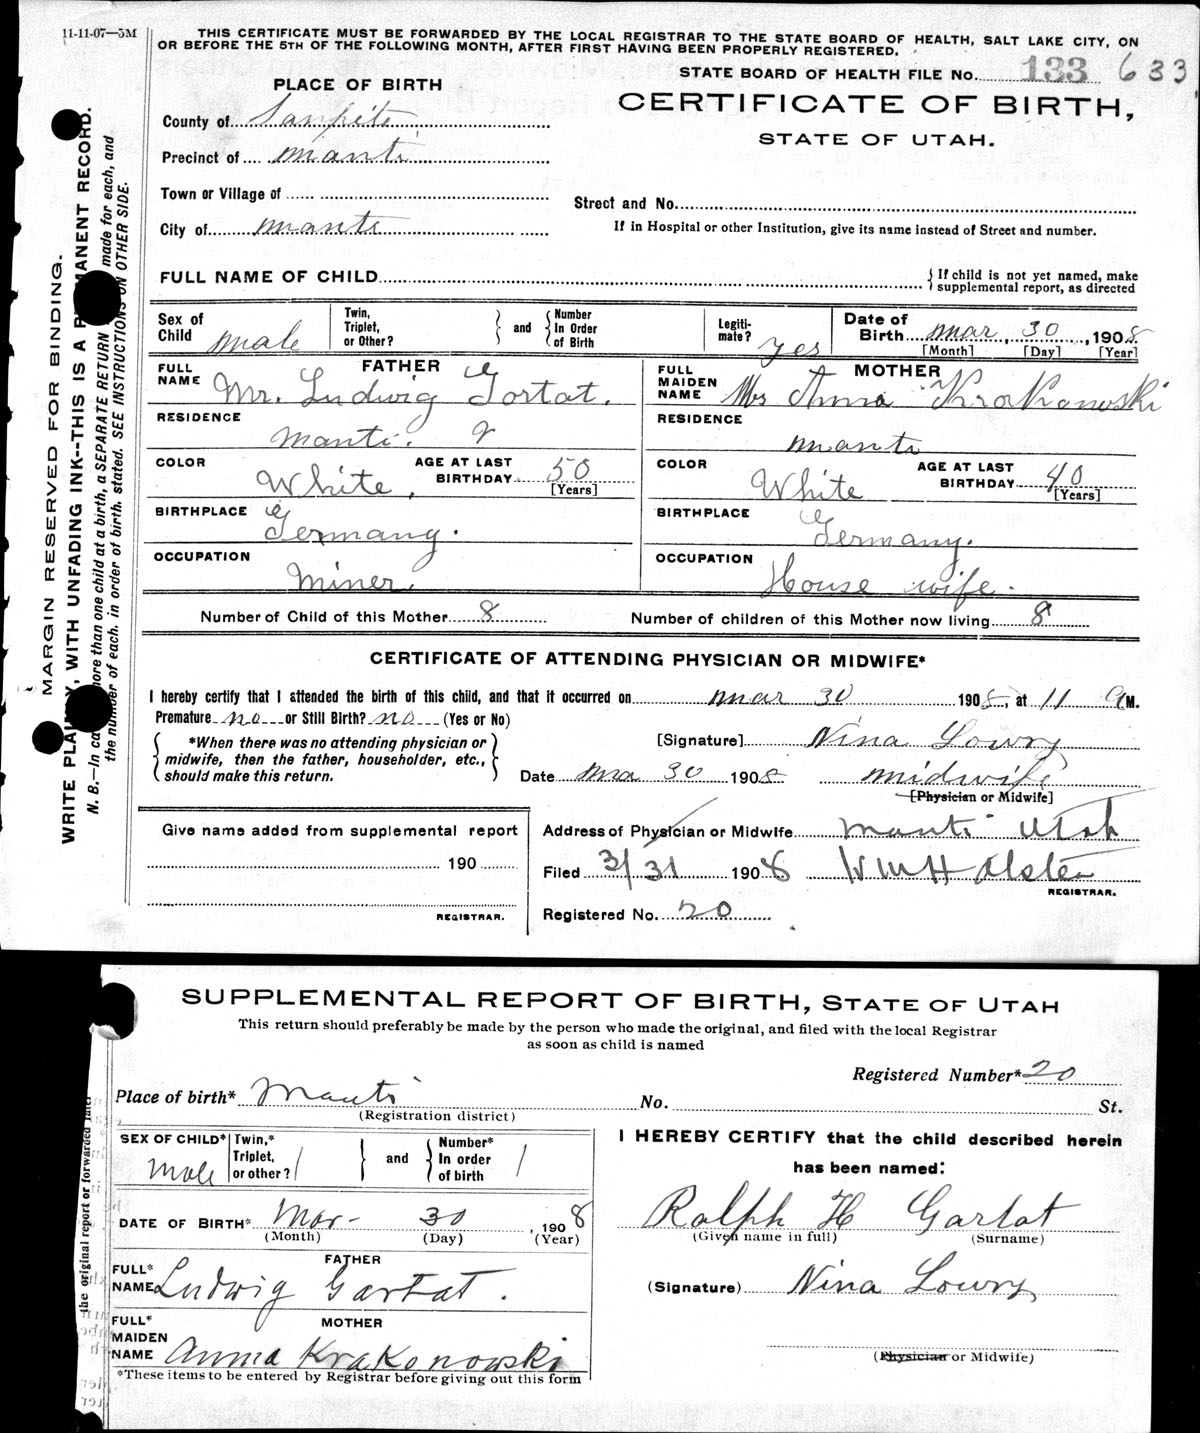 11-11-07—5M
THIS CERTIFICATE MUST BE FORWARDED BY THE LOCAL REGISTRAR TO THE STATE BOARD OF HEALTH, SALT LAKE CITY, ON
OR BEFORE THE 5TH OF THE FOLLOWING MONTH, AFTER FIRST HAVING BEEN PROPERLY REGISTERED.
STATE BOARD OF HEALTH FILE No. 133 633
PLACE OF BIRTH
CERTIFICATE OF BIRTH,
STATE OF UTAH.
County of Sanpete
Precinct of Manti
Town or Village of
Street and No.
City of Manti
If in Hospital or other Institution, give its name instead of Street and number.
FULL NAME OF CHILD
If child is not yet named, make
supplemental report, as directed
Sex of
Child male
Twin,
Triplet,
or Other?
and
Number
In Order
of Birth
Legiti-
mate? yes
Date of
Birth Mar, 30, 1908.
[Month] [Day] [Year]
FATHER
FULL
NAME Mr. Ludwig Gortat.
MOTHER
FULL
MAIDEN
NAME Mrs Anna Krakonowski
RESIDENCE
Manti.
RESIDENCE
Manti
COLOR White.
AGE AT LAST
BIRTHDAY 50
[Years]
COLOR White
AGE AT LAST
BIRTHDAY 40
[Years]
BIRTHPLACE
Germany.
BIRTHPLACE
Germany.
OCCUPATION
Miner.
OCCUPATION
House wife.
Number of Child of this Mother 8
Number of children of this Mother now living 8
CERTIFICATE OF ATTENDING PHYSICIAN OR MIDWIFE*
I hereby certify that I attended the birth of this child, and that it occurred on Mar 30 1908, at 11 a M.
Premature no or Still Birth? no (Yes or No)
*When there was no attending physician or
midwife, then the father, householder, etc.,
should make this return.
[Signature] Nina Lowry
Date Mar 30 1908 midwife
[Physician or Midwife]
Give name added from supplemental report
190
REGISTRAR.
Address of Physician or Midwife Manti Utah
Filed 3/31 1908 W M H Alster
REGISTRAR.
Registered No. 20
MARGIN RESERVED FOR BINDING.
WRITE PLAINLY, WITH UNFADING INK--THIS IS A PERMANENT RECORD.
N. B.—In case more than one child at a birth, a SEPARATE RETURN made for each, and
the number of each, in order of birth, stated. SEE INSTRUCTIONS ON OTHER SIDE.
SUPPLEMENTAL REPORT OF BIRTH, STATE OF UTAH
This return should preferably be made by the person who made the original, and filed with the local Registrar
as soon as child is named
Registered Number* 20
Place of birth* Manti No. St.
(Registration district)
SEX OF CHILD*
Male
Twin,*
Triplet,
or other?
and
Number*
In order
of birth
I HEREBY CERTIFY that the child described herein
has been named:
DATE OF BIRTH* Mar- 30, 1908
(Month) (Day) (Year)
Ralph H Gartat
(Given name in full) (Surname)
FATHER
FULL*
NAME Ludwig Gartat.
(Signature) Nina Lowry
MOTHER
FULL*
MAIDEN
NAME Anna Krakonowski
(Physician or Midwife)
*These items to be entered by Registrar before giving out this form
the original report or forwarded later